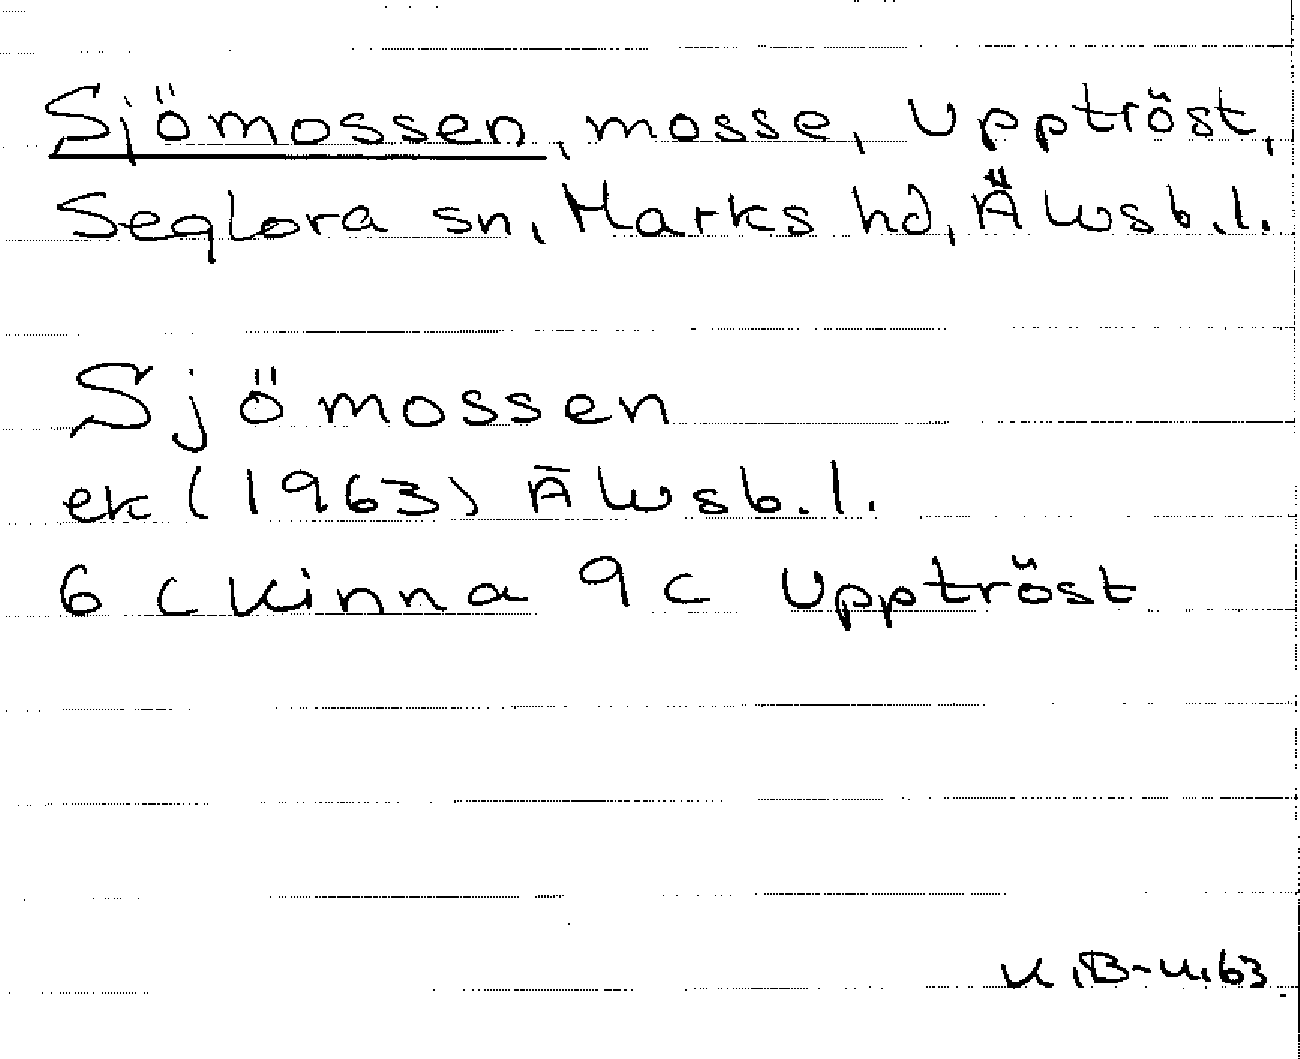 Sjömossen, mosse, Upptröst,
Seglora sn, Marks hd, Älvsb.l.
Sjömossen
ek (1963) Älvsb.l.
6 C Kinna 9 c Upptröst